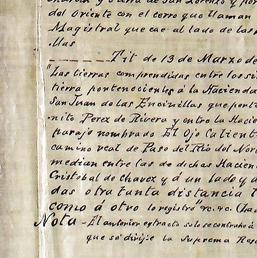 y Sierra de San Lorenzo y por
del Oriente con el cerro que llaman
Magistral que cae al lado de las
llas
Tit de 13 de Marzo de
"Las tierras comprendidas entre los
tierra pertenecientes á la Hacienda
San Juan de las Encinillas que
nito Perez de Rivera y entre la Hacien
paraje nombrado El Ojo Caliente
camino real de Paso del Rio del Nor
median entre las de dichas Hacien
Cristóbal de Chavez y á un lado y
das otra tanta distancia
como á otro lo registro" &c. &c.
Nota - El anterior extracto solo se contrahe á
que se dirije la Suprema